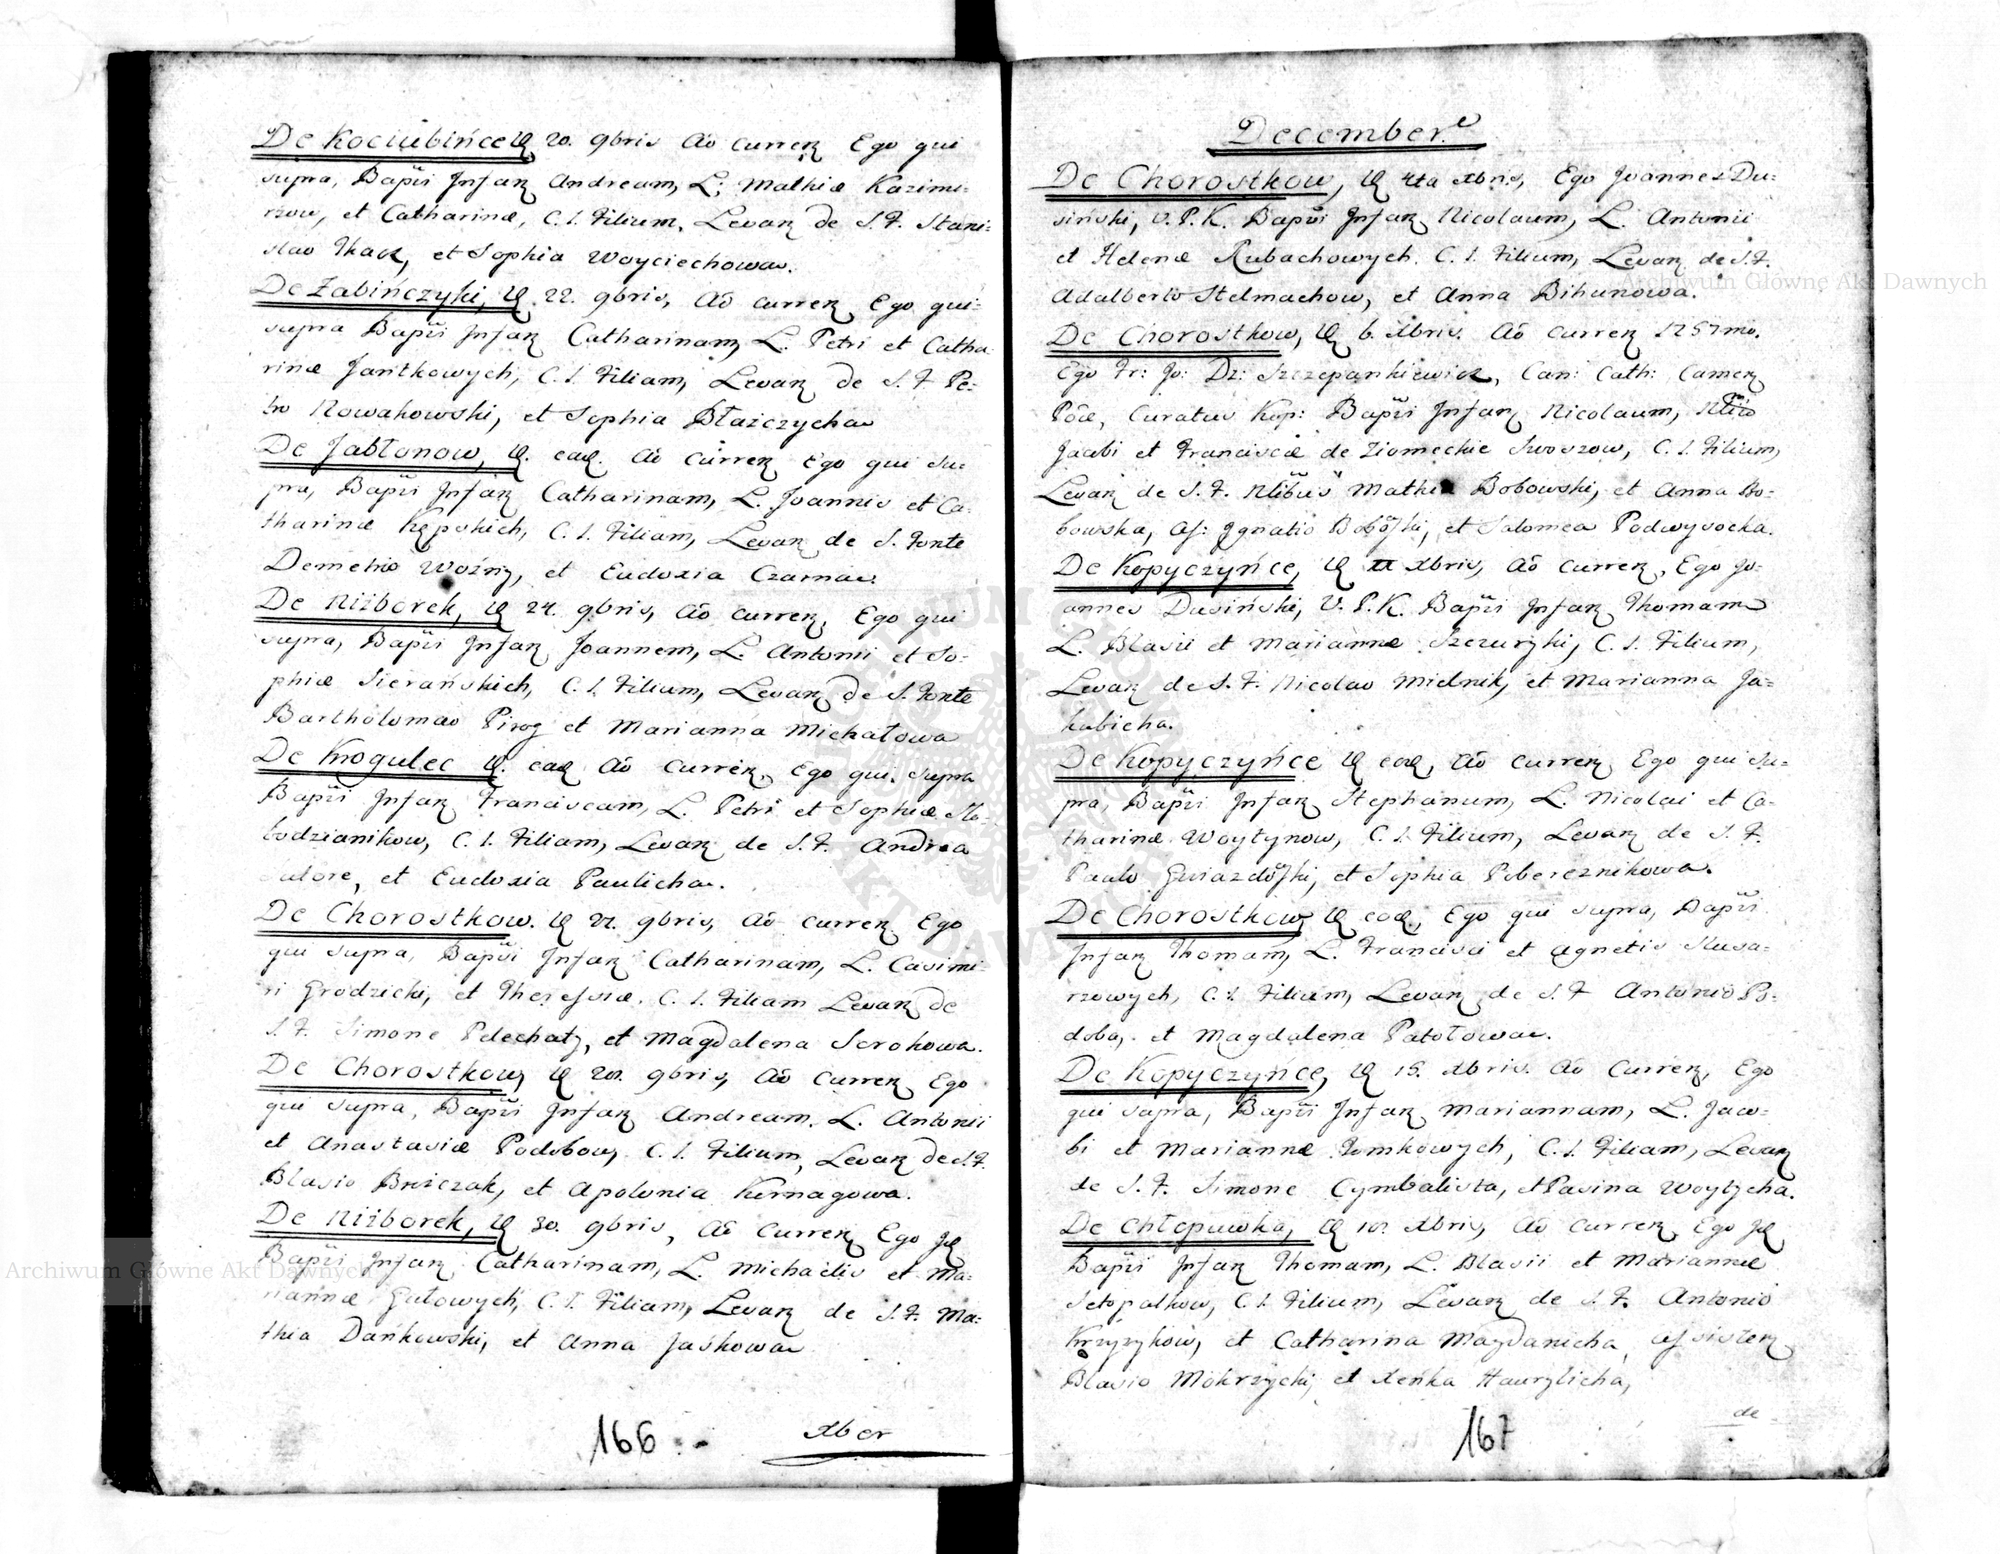 De Kociubińce, 20. 9bris Aō curren Ego qui
supra, Bapti Infan Andream, L: Mathiæ Kazimi-
rzow, et Catharinæ, C. L. Filium. Levan de S. F. Stani-
slao Tkacz, et Sophia Woyciechowa.
De Zabińczyki, 22. 9bris, Aō curren Ego qui
supra Bapti Infan Catharinam, L. Petri et Catha
rinæ Jantkowych, C. L. Filiam, Levan de S. F. Pe-
tro Nowakowski, et Sophia Błażczycha
De Jabłonow, ead. Aō curren Ego qui su-
pra, Bapti Infan Catharinam, L. Joannis et Ca-
tharinæ Kępskich, C. L. Filiam, Levan de S. Fonte
Demetrio Woźny, et Eudoxia Czarna.
De Niżborek, 24. 9bris, Aō curren, Ego qui
supra, Bapti Infan Joannem, L. Antonii et So-
phiæ Sierańskich, C. L. Filium, Levan de S. Fonte
Bartholomæo Pirog et Marianna Michałowa
De Knogulec ead Aō curren, Ego qui supra
Bapti Infan Franciscam, L. Petri et Sophiæ Sło-
bodzianikow, C. L. Filiam, Levan de S. F. Andrea
et Eudoxia Paulicha.
De Chorostkow. 27. 9bris, Aō curren Ego
qui supra, Bapti Infan Catharinam, L. Casimi-
ri Grodzicki, et Theressiæ. C. L. Filiam Levan de
S. F. Simone Pelechaty, et Magdalena Serokowa.
De Chorostkow, 9bris, Aō curren Ego
qui supra, Bapti Infan Andream. L. Antonii
et Anastasiæ Podobow, C. L. Filium, Levan de S. F.
Blasio Briżczak, et Apolonia Kernagowa.
De Niżborek, 30. 9bris, Aō curren Ego
Bapti Infan Catharinam, L. Michaelis et Ma-
riannæ Gutowych, C. L. Filiam, Levan de S. F. Ma-
thia Dańkowski, et Anna Jaśkowa
166
Xber
December
De Chorostkow, 4ta Xbris, Ego Joannes Du-
siński, V. P. K. Bapti Infan Nicolaum, L. Antonii
et Helenæ Rubachowych. C. L. Filium, Levan de S. F.
Adalberto Stelmachow, et Anna Bihunowa.
De Chorostkow, 6. Xbris. Aō curren 1757mo.
Ego Fr: Jo: Dz: Szczepankiewicz, Can: Cath: Camen
Pōæ, Curatus Kop: Bapti Infan Nicolaum,
Jacobi et Franciscæ de Ziomeckie Swoszow, C. L. Filium,
Levan de S. F. Mathia Bobowski, et Anna Bo-
bowska, As: Ignatio Bobōski, et Salomea Podwysocka.
De Kopyczyńce, Xbris, Aō curren, Ego Jo-
annes Dusiński, V. P. K. Bapti Infan Thomam
L. Blasii et Mariannæ Szczurzyki, C. L. Filium,
Levan de S. F. Nicolao Mielnik, et Marianna Ja-
kubicha.
De Kopyczyńce ead, Aō curren Ego qui su-
pra, Bapti Infan Stephanum, L. Nicolai et Ca-
tharinæ Woytynow, C. L. Filium, Levan de S. F.
Paulo Gwiazdōski, et Sophia Pobereznikowa.
De Chorostkow, ead, Ego qui supra, Bapti
Infan Thomam, L. Francisci et Agnetis Slusa-
rzowych, C. L. Filium, Levan de S. F Antonio Po-
doba, et Magdalena Patołowa.
De Kopyczyńce, 15. Xbris. Aō curren, Ego
qui supra, Bapti Infan Mariannam, L. Jaco-
bi et Mariannæ Tomkowych, C. L. Filiam, Levan
de S. F. Simone Cymbalista, et Pasina Woytycha.
De Chłopuwka, Xbris, Aō curren Ego
Bapti Infan Thomam, L. Blasii et Mariannæ
Setopatkow, C. L. Filium, Levan de S. F. Antonio
Krzyzyków, et Catharina Magdanicha, assisten
Blasio Mokrzycki, et Xeńka Haurylicha,
de
167
Archiwum Główne Akt Dawnych
Archiwum Główne Akt Dawnych